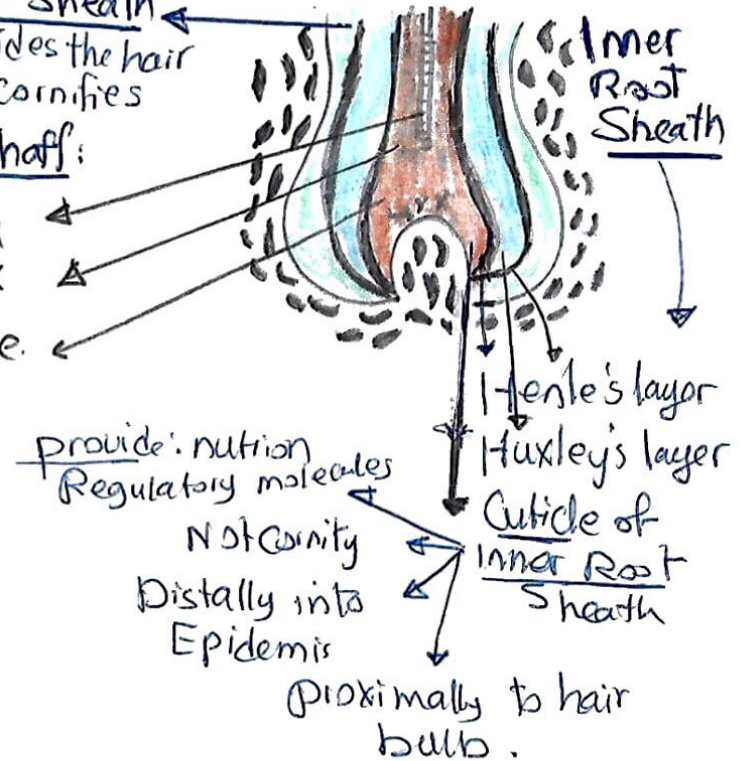 Sheath
ides the hair
cornifies
haff:
e.
Inner
Root
Sheath
Henle's layer
Huxley's layer
Cuticle of
Inner Root
Sheath
provide: nution
Regulatory molecules
Not Cornity
Distally into
Epidemis
proximally to hair
bulb.